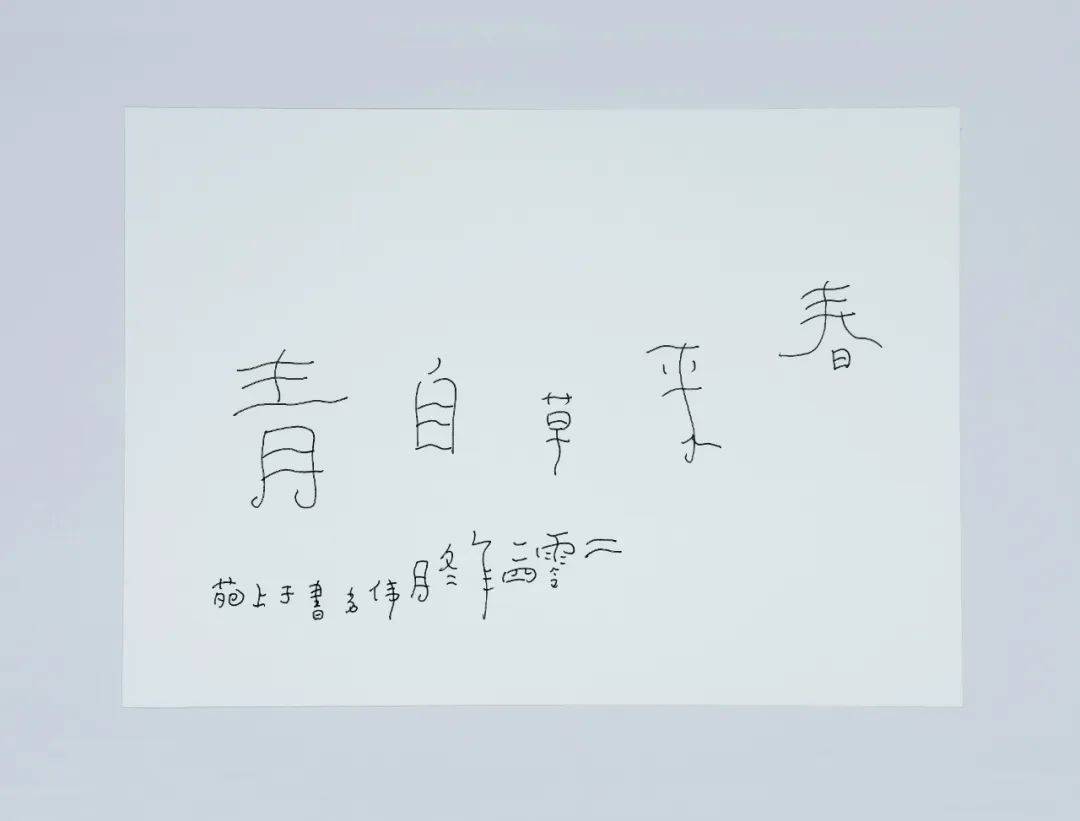 春来草自青
二零二四年冬月伟多書于上苑